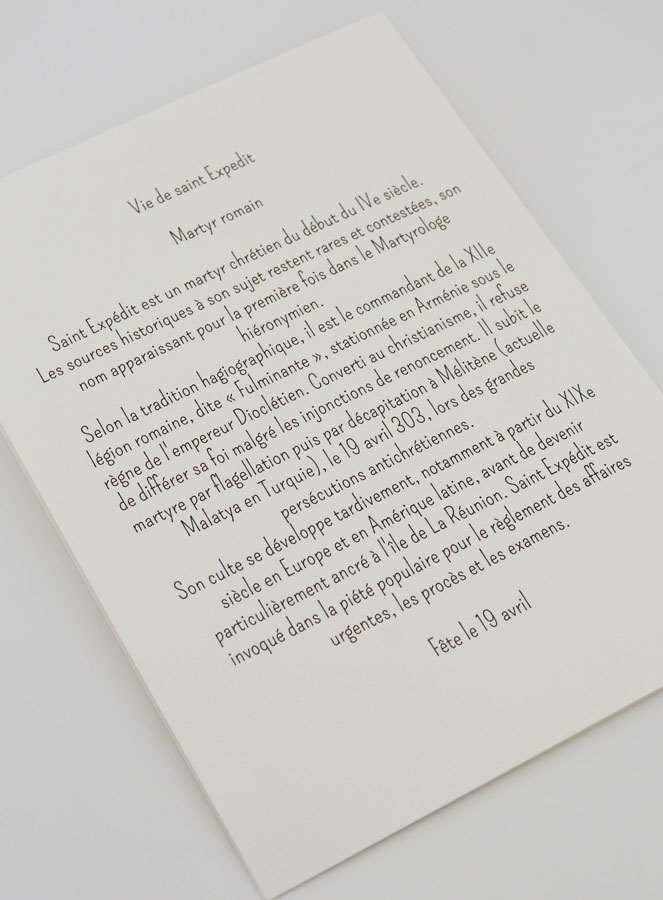 Vie de saint Expedit
Martyr romain
Saint Expédit est un martyr chrétien du début du IVe siècle.
Les sources historiques à son sujet restent rares et contestées, son
nom apparaissant pour la première fois dans le Martyrologe
hiéronymien.
Selon la tradition hagiographique, il est le commandant de la XIIe
légion romaine, dite « Fulminante », stationnée en Arménie sous le
règne de l'empereur Dioclétien. Converti au christianisme, il refuse
de différer sa foi malgré les injonctions de renoncement. Il subit le
martyre par flagellation puis par décapitation à Mélitène (actuelle
Malatya en Turquie), le 19 avril 303, lors des grandes
persécutions antichrétiennes.
Son culte se développe tardivement, notamment à partir du XIXe
siècle en Europe et en Amérique latine, avant de devenir
particulièrement ancré à l'île de La Réunion. Saint Expédit est
invoqué dans la piété populaire pour le règlement des affaires
urgentes, les procès et les examens.
Fête le 19 avril